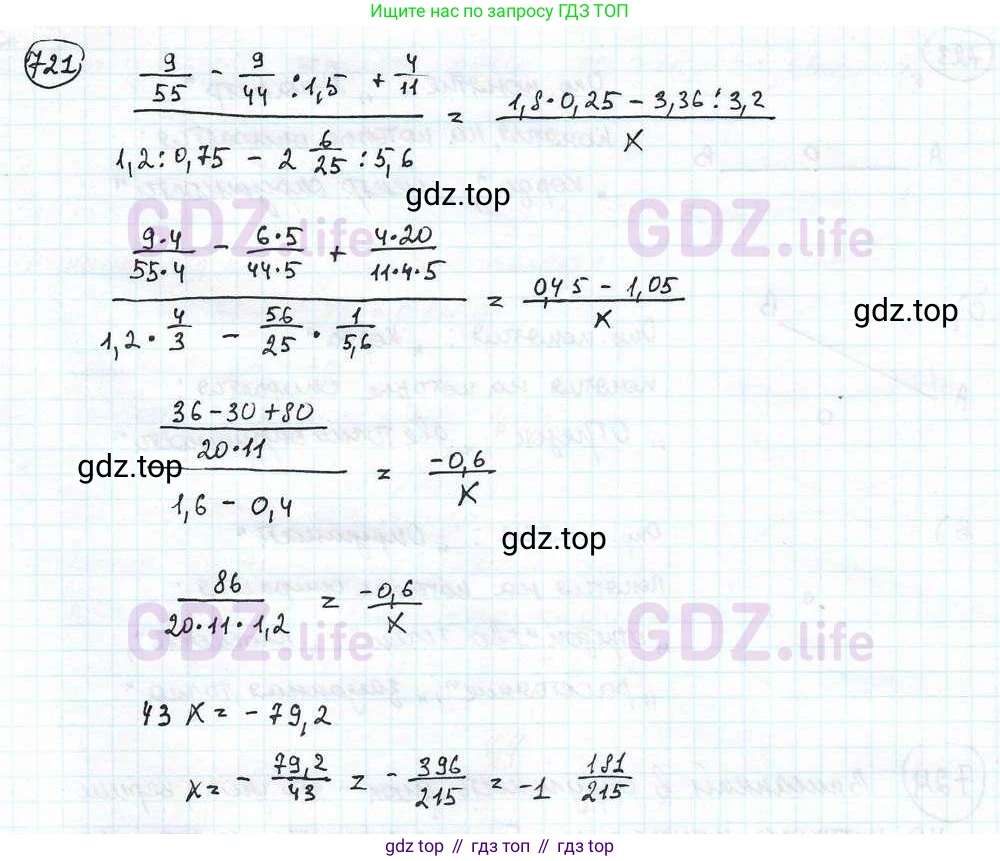 Ищите по запросу ГДЗ ТОП
721
9/55 - 9/44 : 1,5 + 4/11
1,2 : 0,75 - 2 6/25 : 5,6
= 1,8 · 0,25 - 3,36 : 3,2 / x
gdz.top
GDZ.life GDZ.life
9·4/55·4 - 6·5/44·5 + 4·20/11·4·5
1,2 · 4/3 - 56/25 · 1/5,6
= 0,45 - 1,05 / x
gdz.top
36 - 30 + 80
20·11
1,6 - 0,4
= -0,6/x
gdz.top
gdz.top
86/20·11·1,2 = -0,6/x
GDZ.life GDZ.life
43 x = - 79,2
x = - 79,2/43 = - 396/215 = -1 181/215
gdz.top // гдз топ // gdz top // гдз.топ